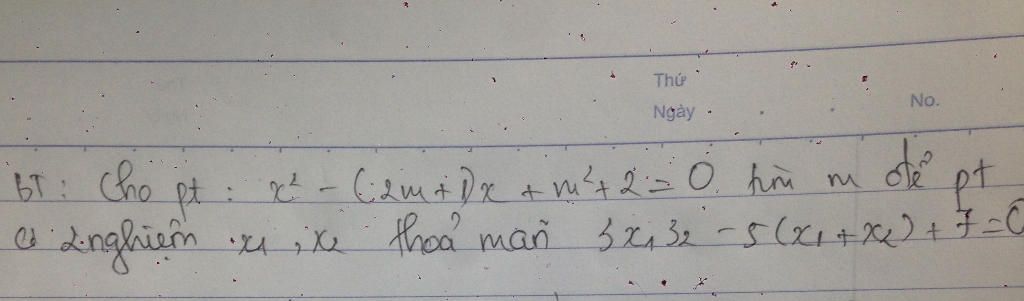 Thứ
Ngày
No.
BT: Cho pt: x² - (2m+1)x + m²+2=0. tìm m để pt
có 2 nghiệm x₁, x₂ thoả mãn 3x₁3₂ - 5(x₁+x₂)+7=0